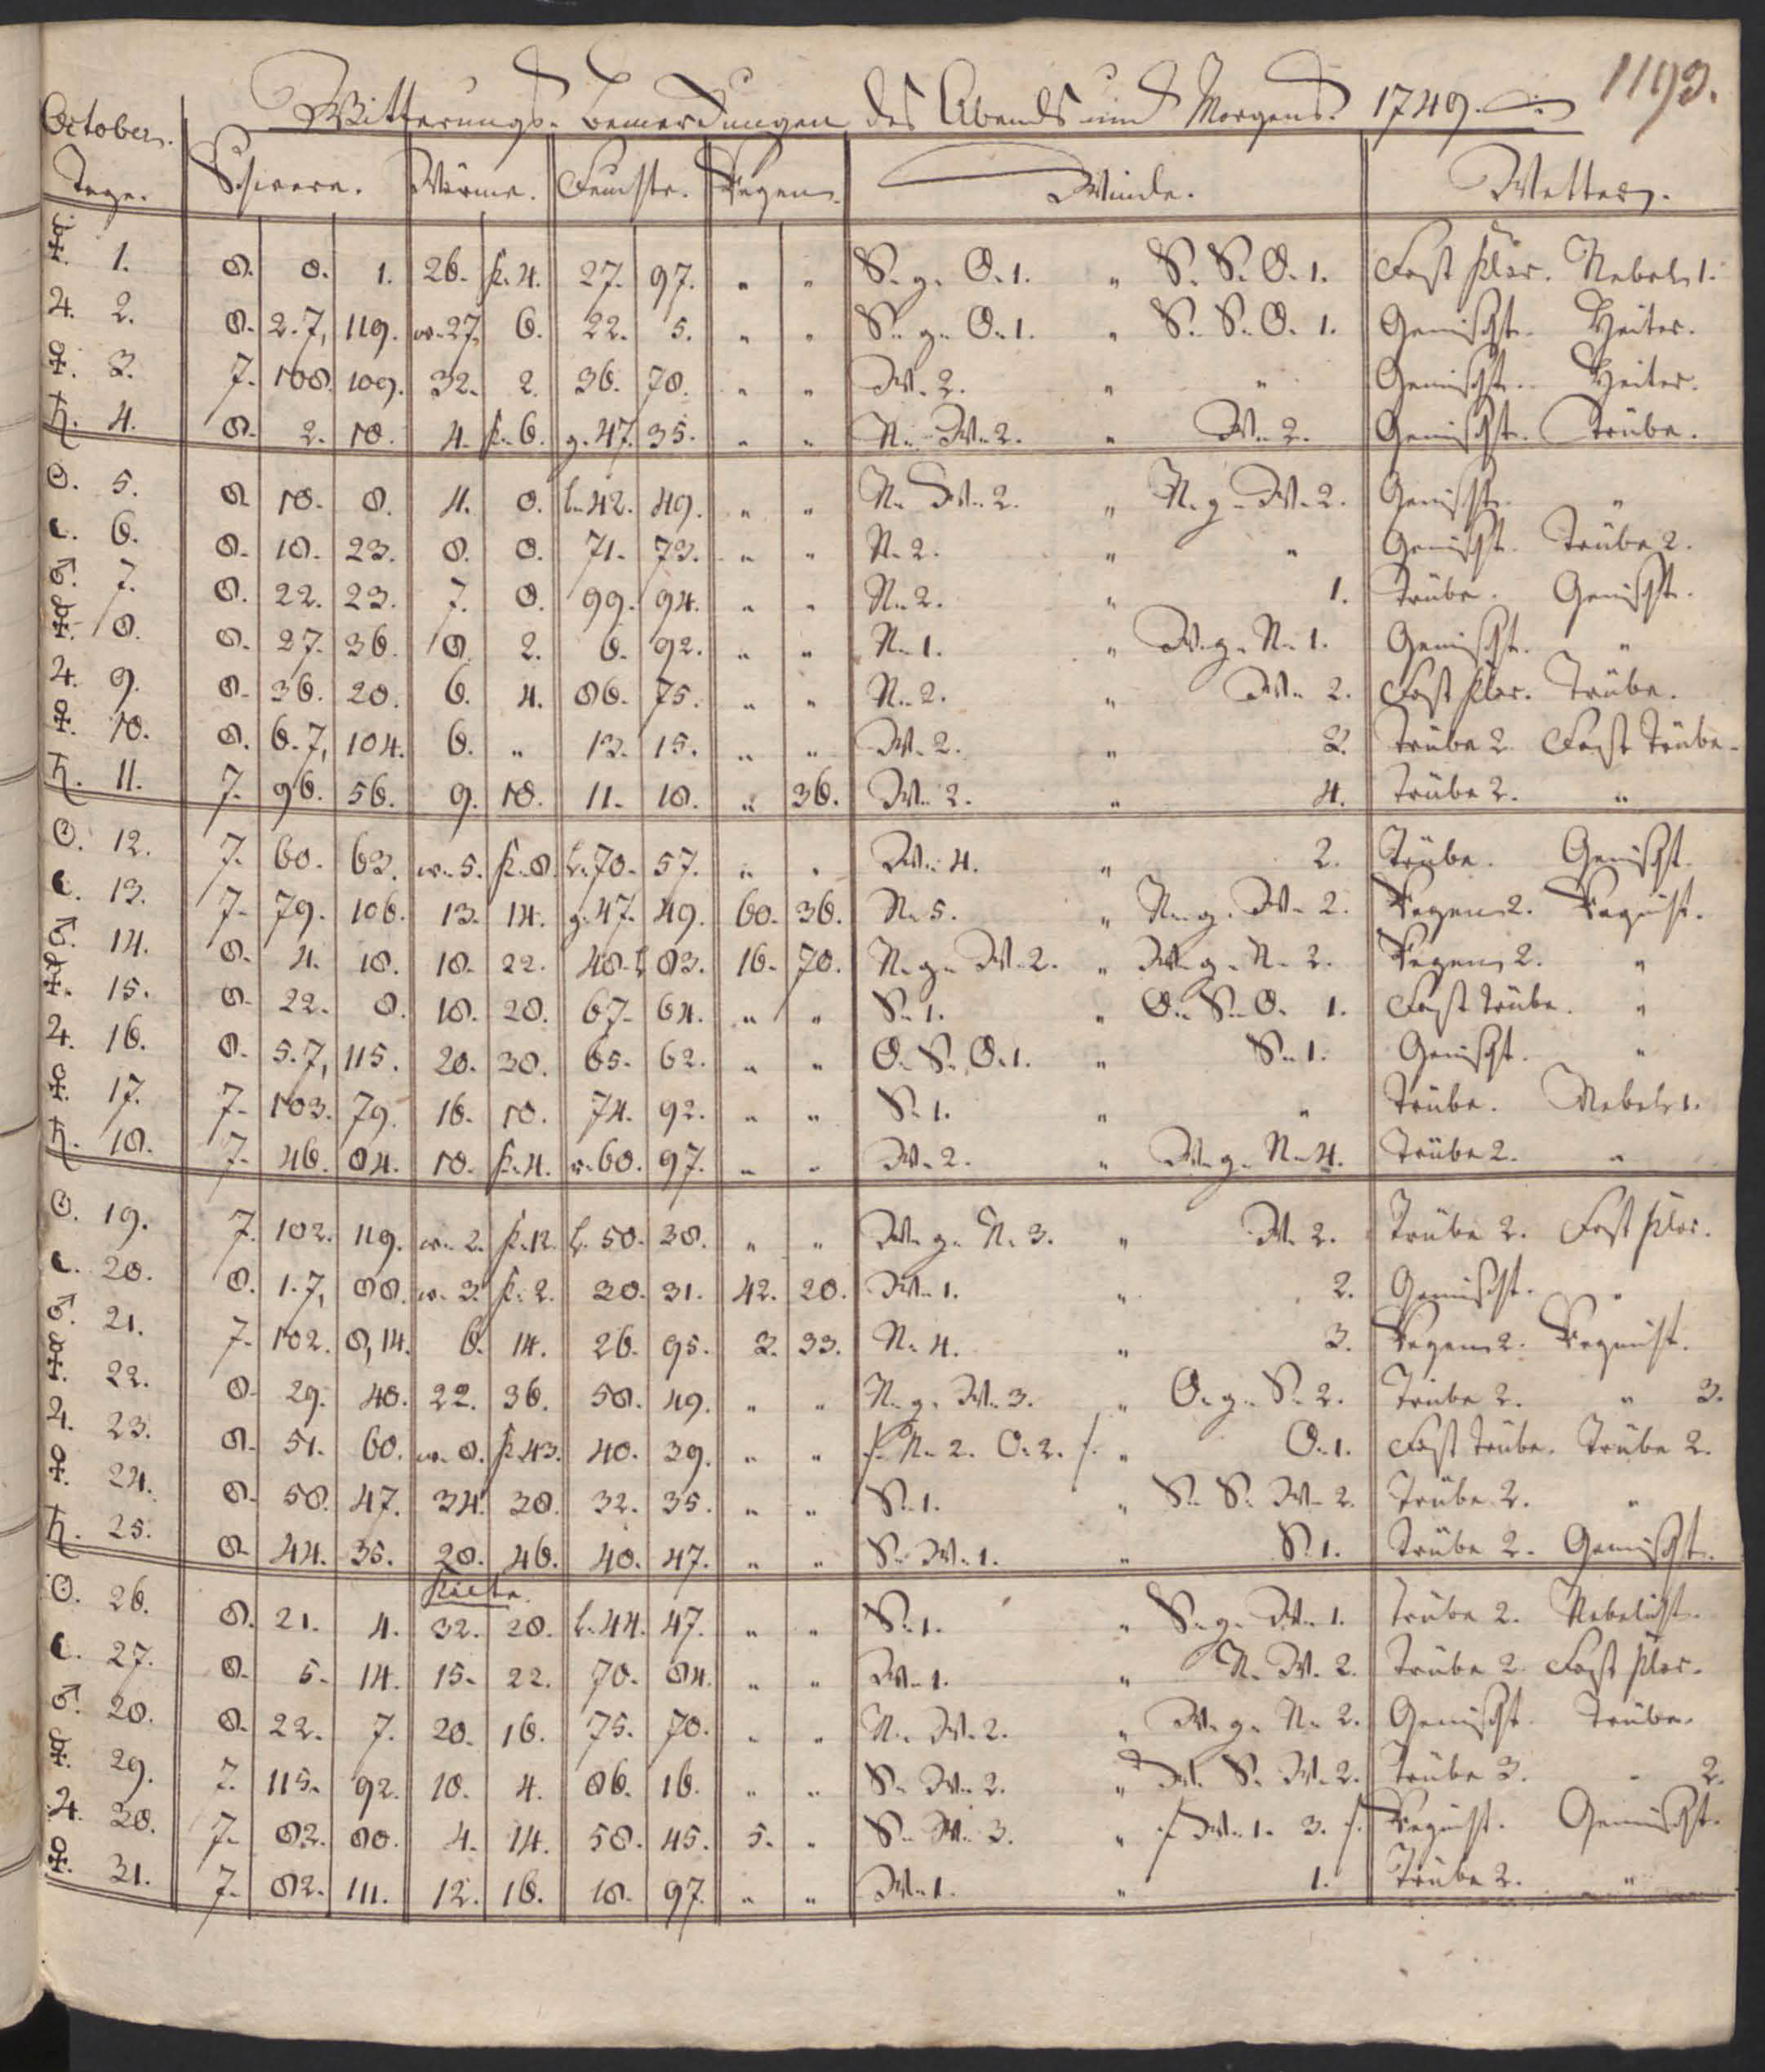 1193.
Witterungs-Bemerckungen des Abends und Morgens. 1749.
October.
Tage. Schwere. Wärme. Feuchte. Regen. Winde. Wetter.
☿. 1. 8. 8. 1. 26. k. 4. 27. 97. " " S. g. O. 1. " S. S. O. 1. Fast klar. Nebel. 1.
♃. 2. 8. 2. 7, 119. w. 27. 6. 22. 5. " " S. g. O. 1. " S. S. O. 1. Gemischt. Heiter.
♀. 3. 7. 108. 109. 32. 2. 36. 78. " " W. 2. " " Gemischt. Heiter.
♄. 4. 8. 2. 10. 4. k. 6. g. 47. 35. " " N. W. 2. " W. 2. Gemischt. Trübe.
☉. 5. 8. 10. 8. 4. 8. l. 42. 49. " " N. W. 2. " N. g. W. 2. Gemischt. "
☾. 6. 8. 18. 23. 8. 8. 71. 73. " " N. 2. " " Gemischt. Trübe 2.
♂. 7. 8. 22. 23. 7. 8. 99. 94. " " N. 2. " 1. Trübe. Gemischt.
☿. 8. 8. 27. 36. 8. 2. 6. 92. " " N. 1. " W. g. N. 1. Gemischt. "
♃. 9. 8. 36. 20. 6. 4. 86. 75. " " N. 2. " W. 2. Fast klar. Trübe.
♀. 10. 8. 6. 7, 104. 6. " 13. 15. " " W. 2. " 3. Trübe 2. Fast Trübe.
♄. 11. 7. 96. 56. 9. 10. 11. 18. " 36. W. 2. " 4. Trübe 2. "
☉. 12. 7. 60. 63. w. 5. k. 8. l. 70. 57. " " W. 4. " 2. Trübe. Gemischt.
☾. 13. 7. 79. 106. 13. 14. g. 47. 49. 60. 36. N. 5. " N. g. W. 2. Regen 2. Regnicht.
♂. 14. 8. 4. 18. 18. 22. 48. l 83. 16. 70. N. g. W. 2. " W. g. N. 2. Regen 2. "
☿. 15. 8. 22. 8. 18. 20. 67. 64. " " S. 1. " O. S. O. 1. Fast Trübe. "
♃. 16. 8. 5. 7, 115. 20. 30. 65. 62. " " O. S. O. 1. " S. 1. Gemischt. "
♀. 17. 7. 103. 79. 16. 10. 74. 92. " " S. 1. " " Trübe. Nebel. 1.
♄. 18. 7. 46. 84. 10. k. 4. 60. 97. " " W. 2. " W. g. N. 4. Trübe 2. "
☉. 19. 7. 102. 119. w. 2. k. 12. l. 50. 38. " " W. g. N. 3. " W. 2. Trübe 2. Fast klar.
☾. 20. 8. 1. 7, 88. w. 3. k. 2. 30. 31. 42. 20. W. 1. " 2. Gemischt. "
♂. 21. 7. 102. 8, 14. 6. 14. 26. 95. 3. 33. N. 4. " 3. Regen 2. Regnicht.
☿. 22. 8. 29. 40. 22. 36. 58. 49. " " N. g. W. 3. " O. g. S. 2. Trübe 2. " 3.
♃. 23. 8. 51. 60. w. 8. k. 43. 40. 39. " " /. N. 2. O. 2. /. " O. 1. Fast Trübe. Trübe 2.
♀. 24. 8. 58. 47. 34. 38. 32. 35. " " S. 1. " S. S. W. 2. Trübe 2. "
♄. 25. 8. 44. 35. 28. 46. 40. 47. " " S. W. 1. " S. 1. Trübe 2. Gemischt.
Kälte.
☉. 26. 8. 21. 4. 32. 28. l. 44. 47. " " S. 1. " S. g. W. 1. Trübe 2. Nebelicht.
☾. 27. 8. 5. 14. 15. 22. 70. 84. " " W. 1. " N. W. 2. Trübe 2. Fast klar.
♂. 28. 8. 22. 7. 20. 16. 75. 70. " " N. W. 2. " W. g. N. 2. Gemischt. Trübe.
☿. 29. 7. 115. 92. 10. 4. 86. 16. " " S. W. 2. " W. S. W. 2. Trübe 3. " 2.
♃. 30. 7. 82. 80. 4. 14. 58. 45. 5. " S. W. 3. " /. W. 1. 3. /. Regnicht. Gemischt.
♀. 31. 7. 82. 111. 12. 16. 18. 97. " " W. 1. " 1. Trübe 2. "